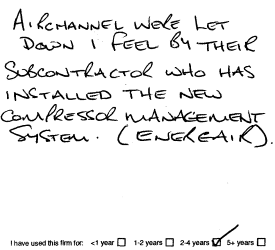 AIRCHANNEL WERE LET
DOWN I FEEL BY THEIR
SUBCONTRACTOR WHO HAS
INSTALLED THE NEW
COMPRESSOR MANAGEMENT
SYSTEM. (ENERGAIR).
I have used this firm for: <1 year ☐ 1-2 years ☐ 2-4 years ☑ 5+ years ☐